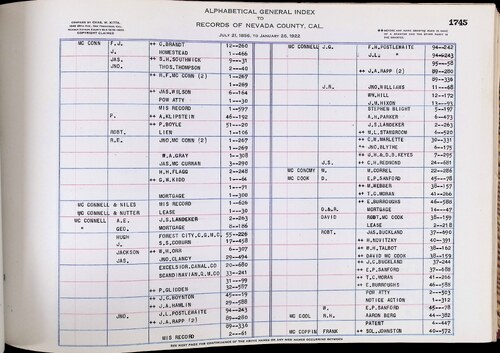 COMPILED BY CHAS. W. KITTS,
COPYRIGHT CLAIMED
ALPHABETICAL GENERAL INDEX
TO
RECORDS OF NEVADA COUNTY, CAL.
JULY 21, 1856, TO JANUARY 26, 1925
1745
MC CONN F.J. ++ C.BRANDT 12--260
J. HOMESTEAD 1--466
JAS. ++ S.H.SOUTHWICK 9--31
JNO. THOS.THOMPSON 2--40
++ R.F.MC CONN (2) 1--267
1--269
++ JAS.WILSON 6--164
POW ATTY 1--30
MIS RECORD 1--597
P. ++ A.KLIPSTEIN 46--192
++ P.BOYLE 17--20
ROBT. LIEN 1--106
R.E. JNO.MC CONN (2) 1--267
1--269
W.A.GRAY 1--308
JAS.MC CURRAN 2--290
H.H.FLAGG 2--248
++ G.W.KIDD 1--66
1--71
MORTGAGE 1--300
MC CONNELL & NILES MIS RECORD 1--626
MC CONNELL & NUTTER LEASE 1--30
MC CONNELL A.E. J.S.LANDEKER 2--263
" GEO. MORTGAGE 8--186
HUGH FOREST CITY,G.M.C. 55--226
J. S.S.COBURN 17--458
JACKSON ++ W.H.ORR 6--307
JAS. JNO.CLANCY 29--494
EXCELSIOR.CANAL.CO 20--680
SCANDINAVIAN,G.M.CO 33--241
31--99
++ P.GLIDDEN 32--587
++ J.C.BOYNTON 45--19
++ J.A.HAMLIN 29--588
JNO. J.L.POSTLEWAITE 94--243
++ J.A.RAPP (2) 89--280
89--336
MIS RECORD 2--61
MC CONNELL J.G. F.H.POSTLEWAITE 94--242
J.L. " 94--243
95--58
++ J.A.RAPP (2) 89--280
89--336
J.R. JNO.WILLIAMS 11--48
WM.HILL 12--172
J.M.HIXON 13--93
STEPHEN BLIGHT 5--197
A.H.PARKER 6--473
J.S.LANDEKER 2--263
++ M.L.STANGROOM 6--520
++ C.W.MARLETTE 30--331
++ JNO.BLYTHE 6--175
++ W.H.& D.S.KEYES 7--295
J.S. ++ C.H.REDMOND 24--681
MC CONOMY M. W.CORREL 22--284
MC COOK D. E.P.SANFORD 45--78
++ M.WEBBER 38--157
++ T.C.MORAN 41--266
++ E.BURROUGHS 46--588
D.& R. MORTGAGE 14--47
DAVID ROBT.MC COOK 38--159
LEASE 2--218
ROBT. JAS.BUCKLAND 37--490
++ H.ROVITZKY 40--391
++ W.H.TALBOT 38--162
++ DAVID MC COOK 38--159
++ J.C.BUCKLAND 37--244
++ E.P.SANFORD 37--688
++ T.C.MORAN 41--266
++ E.BURROUGHS 46--588
POW ATTY 3--523
NOTICE ACTION 1--312
R. ++ E.P.SANFORD 45--78
MC COOL R.H. AARON BERG 44--382
PATENT 4--447
MC COPPIN FRANK ++ SOL.JOHNSTON 40--572
SEE NEXT PAGE FOR CONTINUANCE OF THE ABOVE NAMES OR ANY NEW NAMES OCCURRING BETWEEN